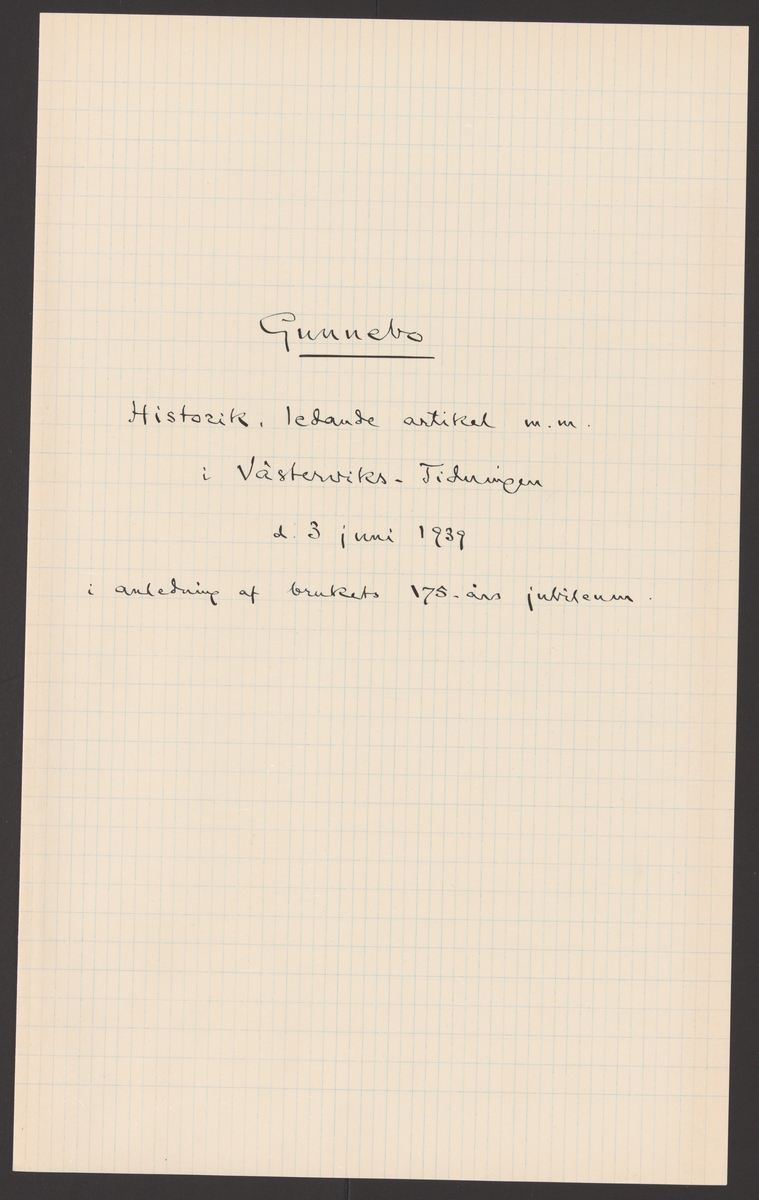 Gunnebo
Historik, ledande artikel m.m.
i Västerviks-Tidningen
d. 3 juni 1939
i anledning af brukets 175-års jubileum.